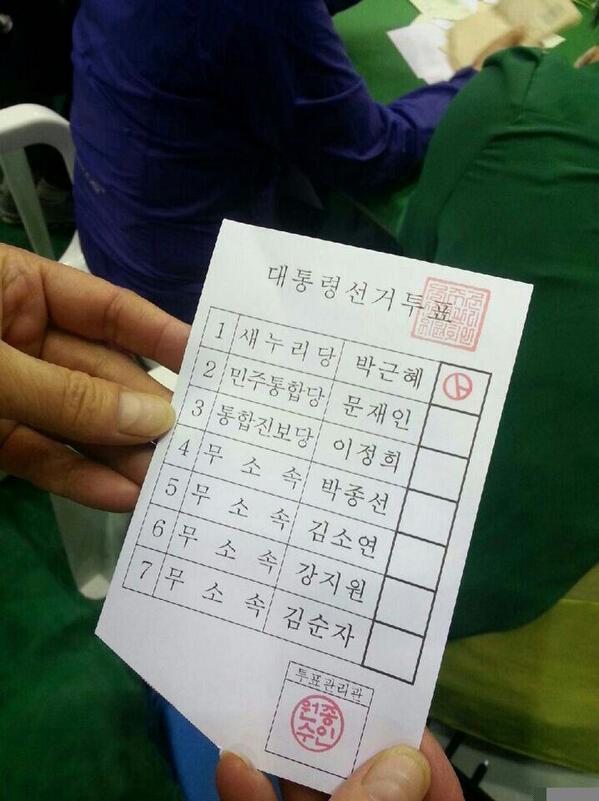 대통령선거투표
1 새누리당 박근혜
2 민주통합당 문재인
3 통합진보당 이정희
4 무소속 박종선
5 무소속 김소연
6 무소속 강지원
7 무소속 김순자
투표관리관
원종
수인